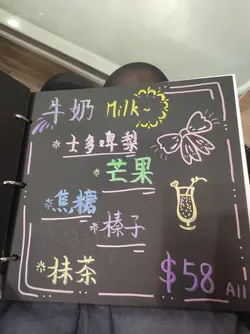 牛奶 Milk~
*士多啤梨
*芒果
*焦糖
*榛子
*抹茶
$58 All